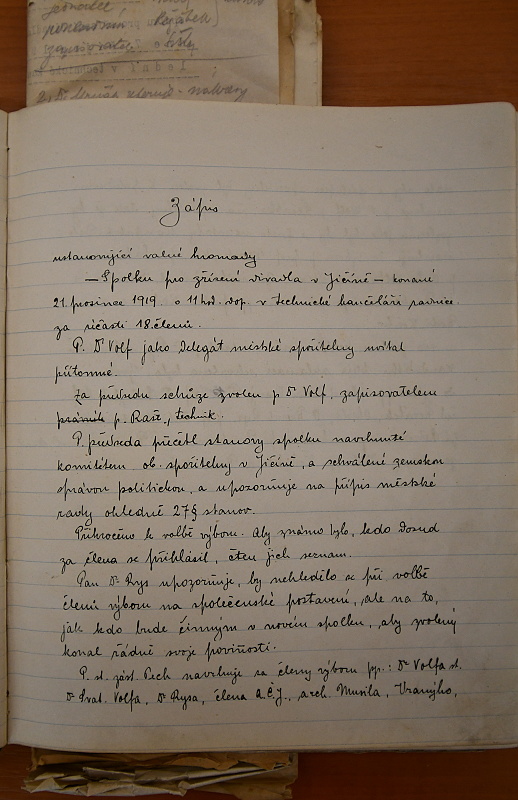 jednatel
pokladník Kejzlík
zapisovatel
Zápis
ustanovující valné hromady
— Spolku pro zřízení divadla v Jičíně — konané
21. prosince 1919 o 11 hod. dop. v technické kanceláři radnice
za účasti 18 členů.
P. Dr Volf jako delegát městské spořitelny uvítal
přítomné.
Za předsedu schůze zvolen p Dr Volf, zapisovatelem
p. Raše, technik.
P. předseda přečetl stanovy spolku navrhnuté
komitétem ob. spořitelny v Jičíně, a schválené zemskou
správou politickou, a upozorňuje na přípis městské
rady ohledně 27§ stanov.
Přikročeno k volbě výboru. Aby známo bylo, kdo dosud
za člena se přihlásil, čten jich seznam.
Pan Dr. Rys upozorňuje, by nehledělo se při volbě
členů výboru na společenské postavení, ale na to,
jak kdo bude činným v novém spolku, aby zvolený
konal řádně svoje povinnosti.
P. st. zást. Pech navrhuje za členy výboru pp.: Dr Volfa st.
Dr. Prat. Volfa, Dr Rysa, člena R.Č.J., arch. Musila, Vraného,